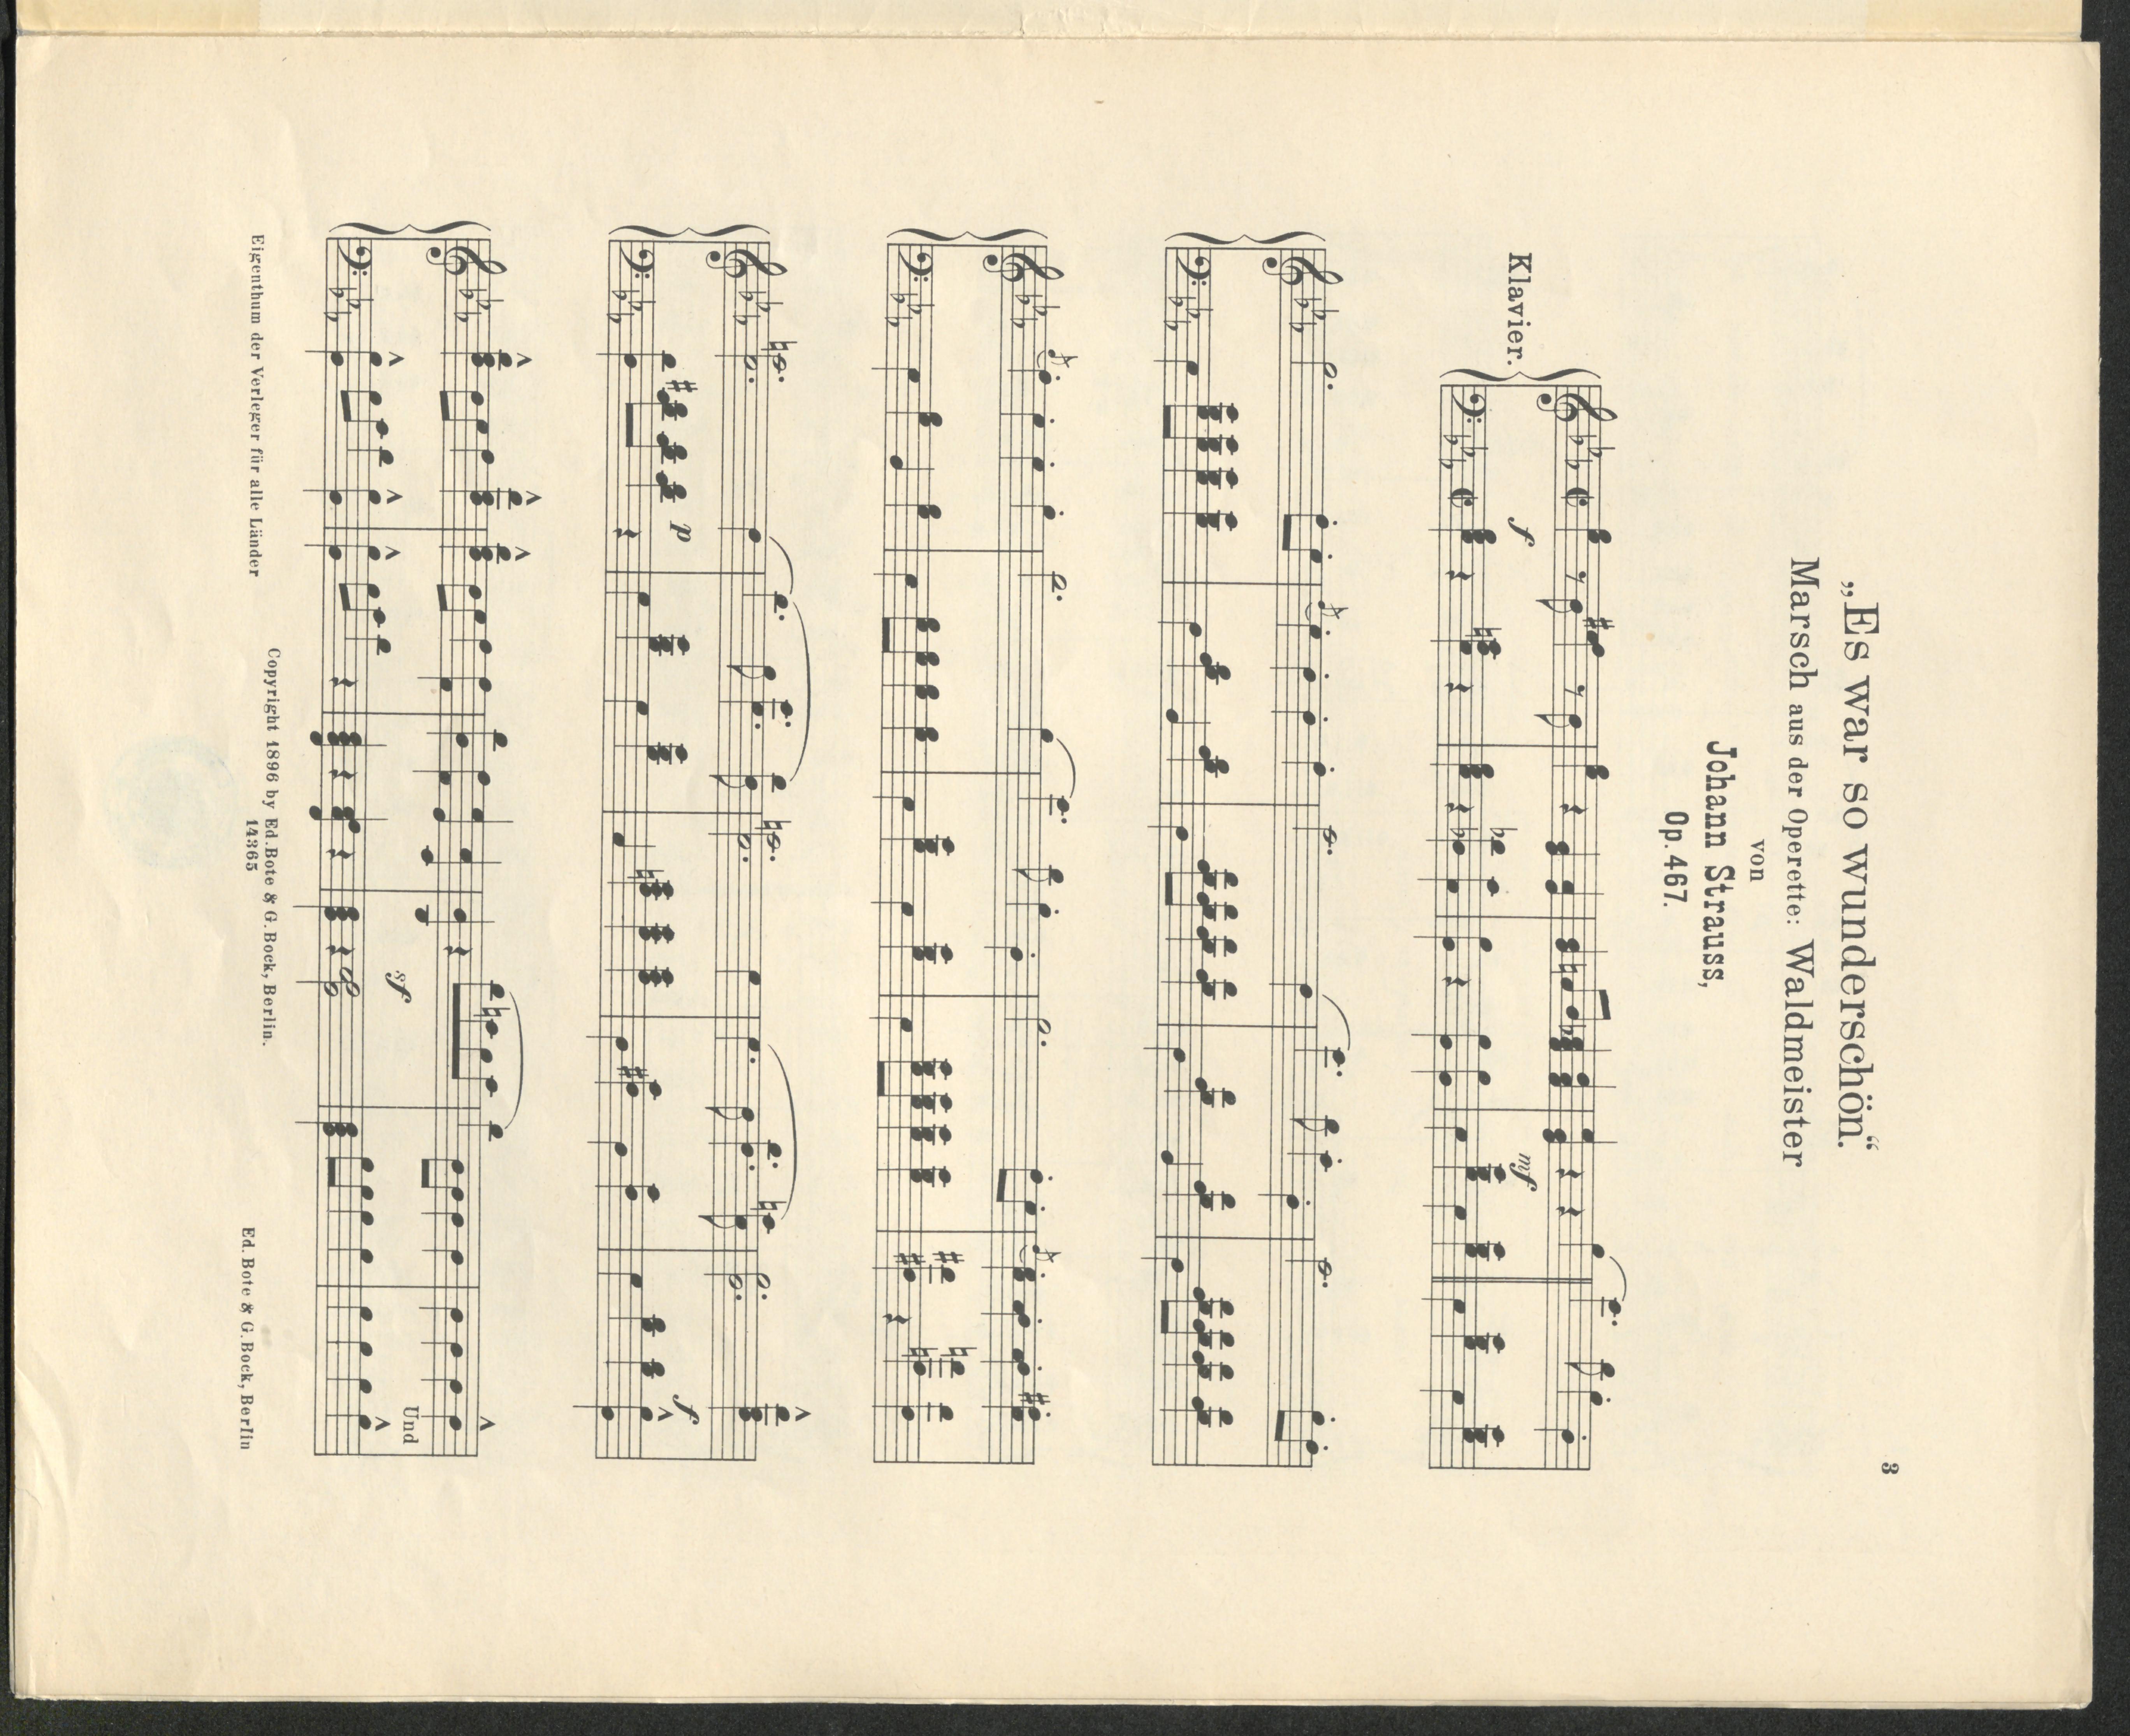 3
„Es war so wunderschön.“
Marsch aus der Operette: Waldmeister
von
Johann Strauss,
Op. 467.
Klavier.
f
mf
p
f
sf
Und
Eigenthum der Verleger für alle Länder
Copyright 1896 by Ed. Bote & G. Bock, Berlin.
14365
Ed. Bote & G. Bock, Berlin